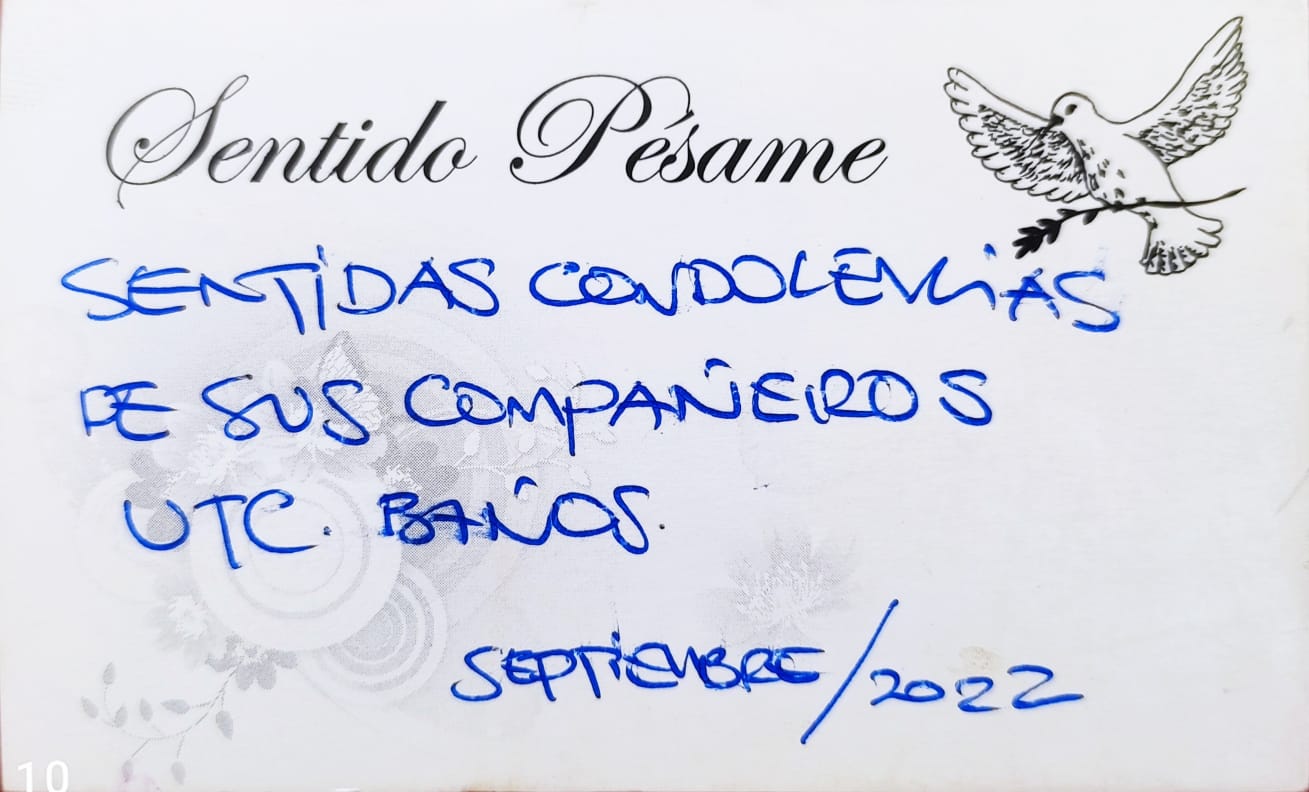 Sentido Pésame
SENTIDAS CONDOLENCIAS
DE SUS COMPAÑEROS
UTC. BAÑOS.
SEPTIEMBRE/2022
10